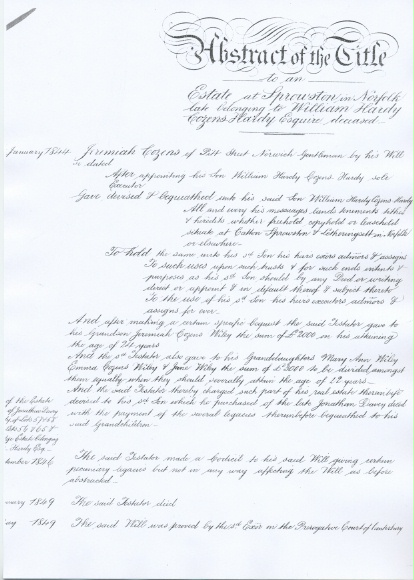 Abstract of the Title
to an
Estate at Sprowston in Norfolk
late belonging to William Hardy
Cozens Hardy Esquire deceased
January 1844 Jeremiah Cozens of Pitt Street Norwich Gentleman by his Will
so dated
After appointing his Son William Hardy Cozens Hardy sole
Executor
Gave devised & bequeathed unto his said Son William Hardy Cozens Hardy
All and every his messuages lands tenements tithes
& heredits whether freehold copyhold or leasehold
situate at Catton Sprowston & Letheringsett in Norfolk
or elsewhere
To hold the same unto his sd Son his heirs exors admors & assigns
To such uses upon such trusts & for such ends intents &
purposes as his sd Son should by any Deed or writing
direct or appoint & in default thereof & subject thereto
To the use of his sd Son his heirs executors admors &
assigns for ever
And after making a certain specific bequest the said Testator gave to
his Grandson Jeremiah Cozens Wiley the sum of £2000 on his attaining
the age of 24 years
And the sd Testator also gave to his Granddaughters Mary Ann Wiley
Emma Cozens Wiley & Jane Wiley the sum of £3000 to be divided amongst
them equally when they should severally attain the age of 22 years
And the said Testator thereby charged such part of his real estate thereinbefe
devised to his sd Son which he purchased of the late Jonathan Davey decd
with the payment of the several legacies thereinbefore bequeathed to his
said Grandchildren
of the Estate
of Jonathan Davey
Estate belonging
Hardy Esq
The said Testator made a Codicil to his said Will giving certain
tember 1846 pecuniary legacies but not in any way affecting the Will as before
abstracted
uary 1849 The said Testator died
1849 The said Will was proved by the sd Exor in the Prerogative Court of Canterbury